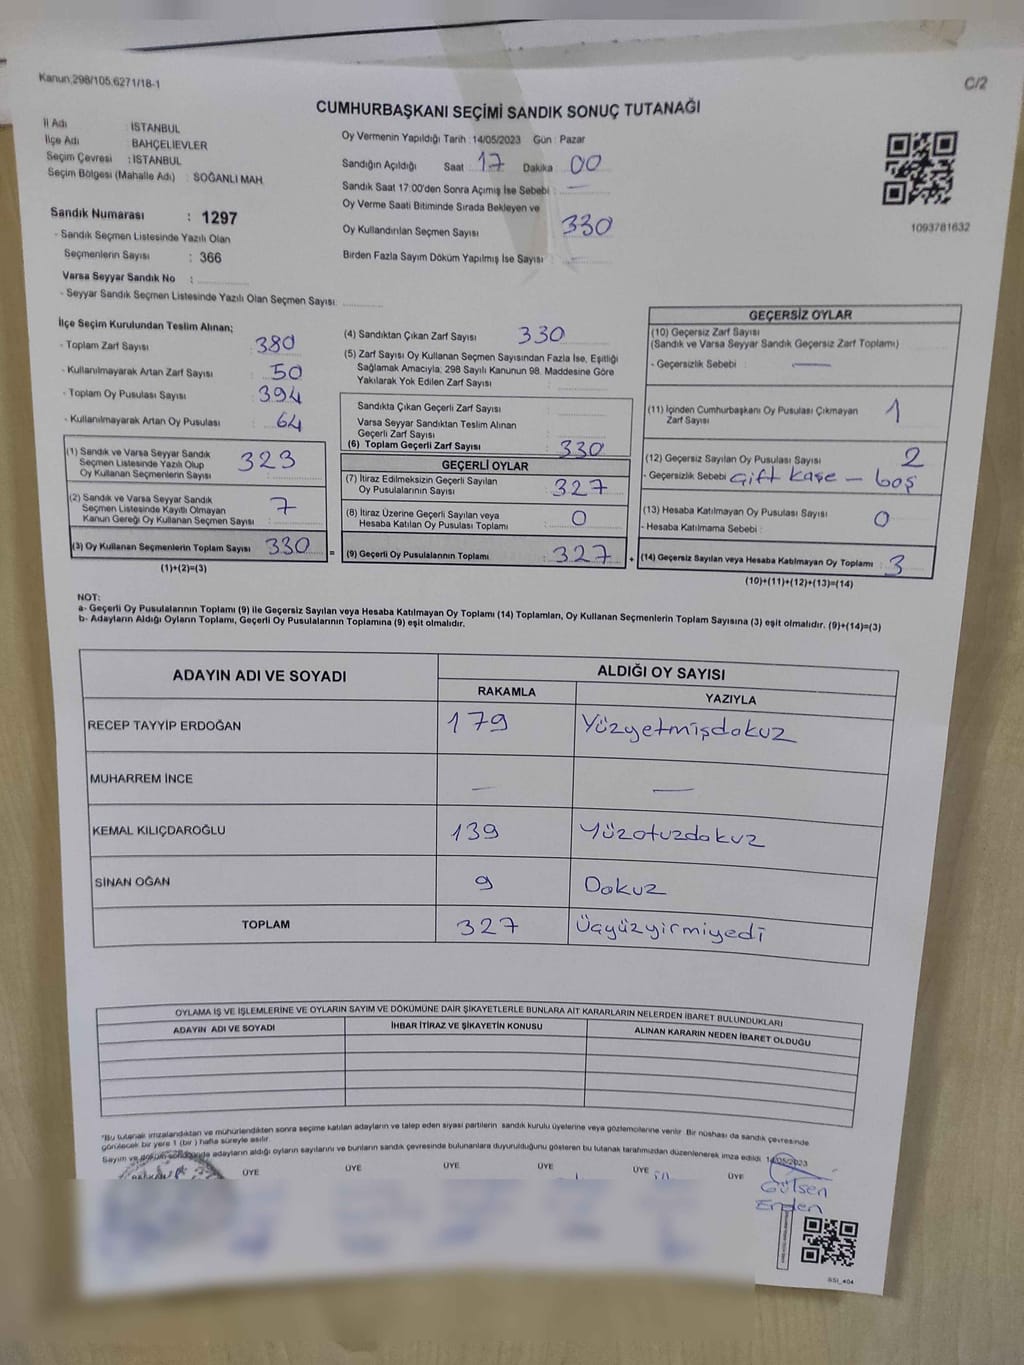 Kanun;298/105,6271/18-1
C/2
CUMHURBAŞKANI SEÇİMİ SANDIK SONUÇ TUTANAĞI
İl Adı : İSTANBUL
İlçe Adı : BAHÇELİEVLER
Seçim Çevresi : İSTANBUL
Seçim Bölgesi (Mahalle Adı) : SOĞANLI MAH.
Sandık Numarası : 1297
- Sandık Seçmen Listesinde Yazılı Olan
Seçmenlerin Sayısı : 366
Varsa Seyyar Sandık No :
- Seyyar Sandık Seçmen Listesinde Yazılı Olan Seçmen Sayısı:
Oy Vermenin Yapıldığı Tarih : 14/05/2023 Gün : Pazar
Sandığın Açıldığı Saat 17 Dakika 00
Sandık Saat 17:00'den Sonra Açımış İse Sebebi : —
Oy Verme Saati Bitiminde Sırada Bekleyen ve
Oy Kullandırılan Seçmen Sayısı 330
Birden Fazla Sayım Döküm Yapılmış İse Sayısı : —
1093781632
İlçe Seçim Kurulundan Teslim Alınan;
- Toplam Zarf Sayısı : 380
- Kullanılmayarak Artan Zarf Sayısı : 50
- Toplam Oy Pusulası Sayısı : 394
- Kullanılmayarak Artan Oy Pusulası : 64
(1) Sandık ve Varsa Seyyar Sandık
Seçmen Listesinde Yazılı Olup
Oy Kullanan Seçmenlerin Sayısı : 323
(2) Sandık ve Varsa Seyyar Sandık
Seçmen Listesinde Kayıtlı Olmayan
Kanun Gereği Oy Kullanan Seçmen Sayısı : 7
(3) Oy Kullanan Seçmenlerin Toplam Sayısı : 330
(1)+(2)=(3)
(4) Sandıktan Çıkan Zarf Sayısı 330
(5) Zarf Sayısı Oy Kullanan Seçmen Sayısından Fazla İse, Eşitliği
Sağlamak Amacıyla; 298 Sayılı Kanunun 98. Maddesine Göre
Yakılarak Yok Edilen Zarf Sayısı :
Sandıkta Çıkan Geçerli Zarf Sayısı :
Varsa Seyyar Sandıktan Teslim Alınan
Geçerli Zarf Sayısı :
(6) Toplam Geçerli Zarf Sayısı : 330
GEÇERLİ OYLAR
(7) İtiraz Edilmeksizin Geçerli Sayılan
Oy Pusulalarının Sayısı : 327
(8) İtiraz Üzerine Geçerli Sayılan veya
Hesaba Katılan Oy Pusulası Toplamı : 0
= (9) Geçerli Oy Pusulalarının Toplamı : 327 +
GEÇERSİZ OYLAR
(10) Geçersiz Zarf Sayısı
(Sandık ve Varsa Seyyar Sandık Geçersiz Zarf Toplamı)
- Geçersizlik Sebebi : —
(11) İçinden Cumhurbaşkanı Oy Pusulası Çıkmayan
Zarf Sayısı : 1
(12) Geçersiz Sayılan Oy Pusulası Sayısı : 2
- Geçersizlik Sebebi çift kaşe - boş
(13) Hesaba Katılmayan Oy Pusulası Sayısı : 0
- Hesaba Katılmama Sebebi :
(14) Geçersiz Sayılan veya Hesaba Katılmayan Oy Toplamı : 3
(10)+(11)+(12)+(13)=(14)
NOT:
a- Geçerli Oy Pusulalarının Toplamı (9) ile Geçersiz Sayılan veya Hesaba Katılmayan Oy Toplamı (14) Toplamları, Oy Kullanan Seçmenlerin Toplam Sayısına (3) eşit olmalıdır. (9)+(14)=(3)
b- Adayların Aldığı Oyların Toplamı, Geçerli Oy Pusulalarının Toplamına (9) eşit olmalıdır.
ADAYIN ADI VE SOYADI ALDIĞI OY SAYISI
RAKAMLA YAZIYLA
RECEP TAYYİP ERDOĞAN 179 Yüzyetmişdokuz
MUHARREM İNCE — —
KEMAL KILIÇDAROĞLU 139 Yüzotuzdokuz
SİNAN OĞAN 9 Dokuz
TOPLAM 327 Üçyüzyirmiyedi
OYLAMA İŞ VE İŞLEMLERİNE VE OYLARIN SAYIM VE DÖKÜMÜNE DAİR ŞİKAYETLERLE BUNLARA AİT KARARLARIN NELERDEN İBARET BULUNDUKLARI
ADAYIN ADI VE SOYADI İHBAR İTİRAZ VE ŞİKAYETİN KONUSU ALINAN KARARIN NEDEN İBARET OLDUĞU
*Bu tutanak imzalandıktan ve mühürlendikten sonra seçime katılan adayların ve talep eden siyasi partilerin sandık kurulu üyelerine veya gözlemcilerine verilir. Bir nüshası da sandık çevresinde
görülecek bir yere 1 (bir) hafta süreyle asılır.
Sayım ve döküm sonunda adayların aldığı oyların sayılarını ve bunların sandık çevresinde bulunanlara duyurulduğunu gösteren bu tutanak tarafımızdan düzenlenerek imza edildi. 14/05/2023
ÜYE ÜYE ÜYE ÜYE ÜYE ÜYE
Gülsen
Erden